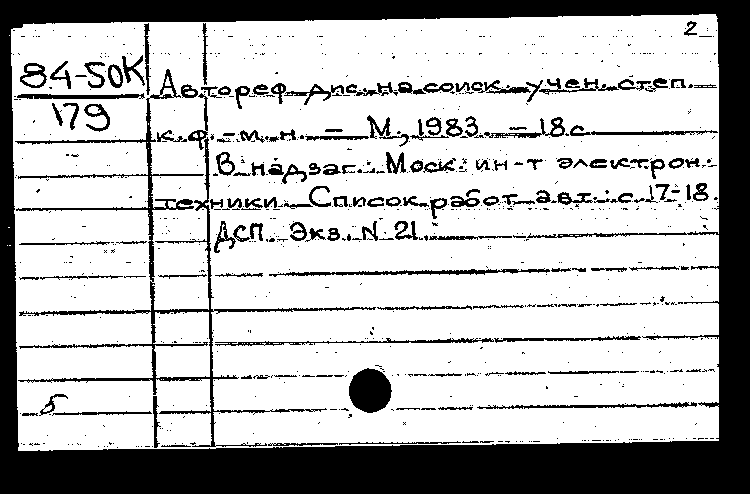 2
84-50К
179
Автореф. дис. на соиск. учен. степ.
к.ф.-м.н. - М., 1983. - 18 с.
В надзаг.: Моск. ин-т электрон.
техники. Список работ авт.: с. 17-18.
ДСП. Экз. N 21.
Б